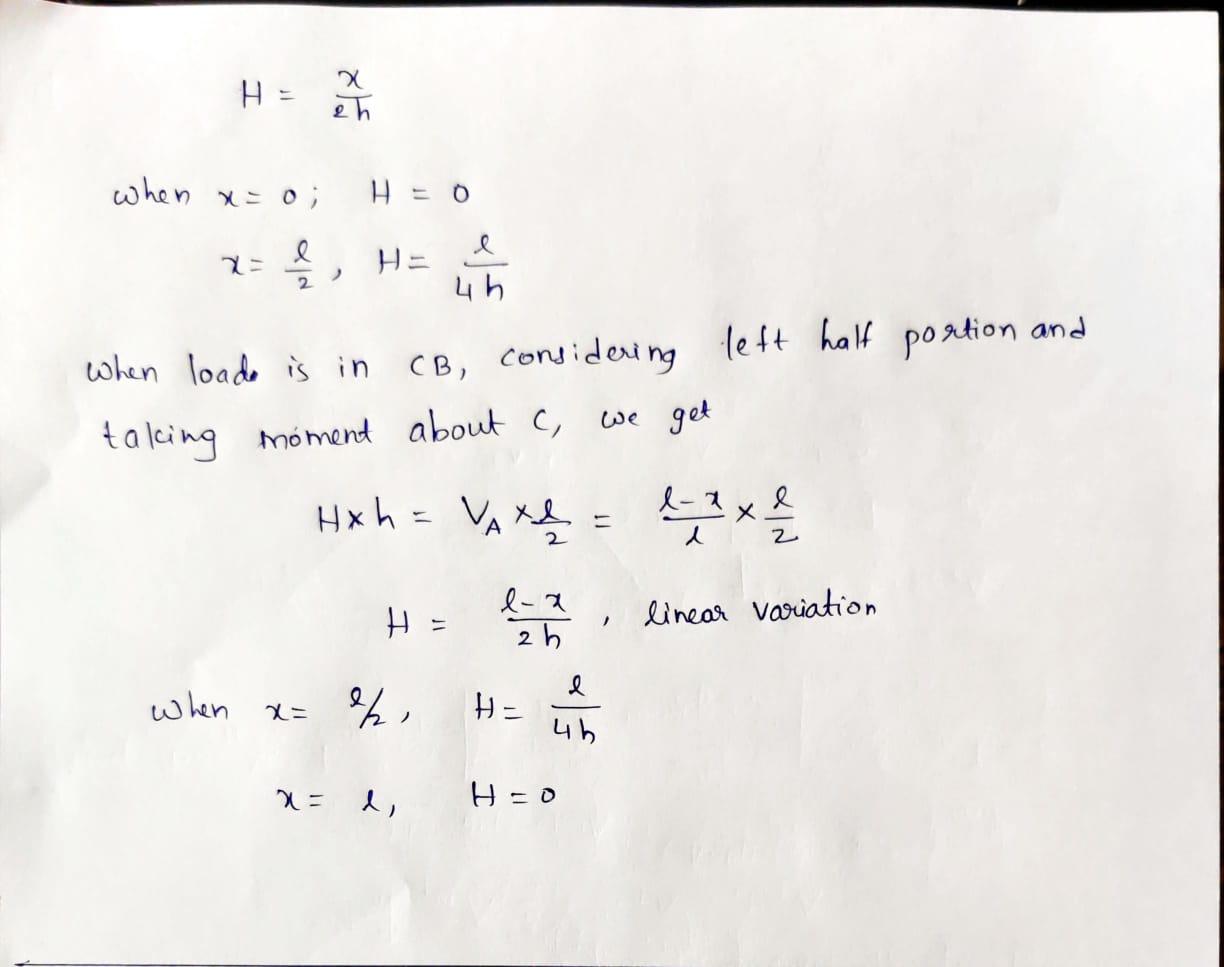 H = x/2h
when x = 0; H = 0
x = l/2, H = l/4h
When load is in CB, considering left half portion and
taking moment about C, we get
H×h = V_A × l/2 = l-x/l × l/2
H = l-x/2h, linear variation
when x = l/2, H = l/4h
x = l, H = 0